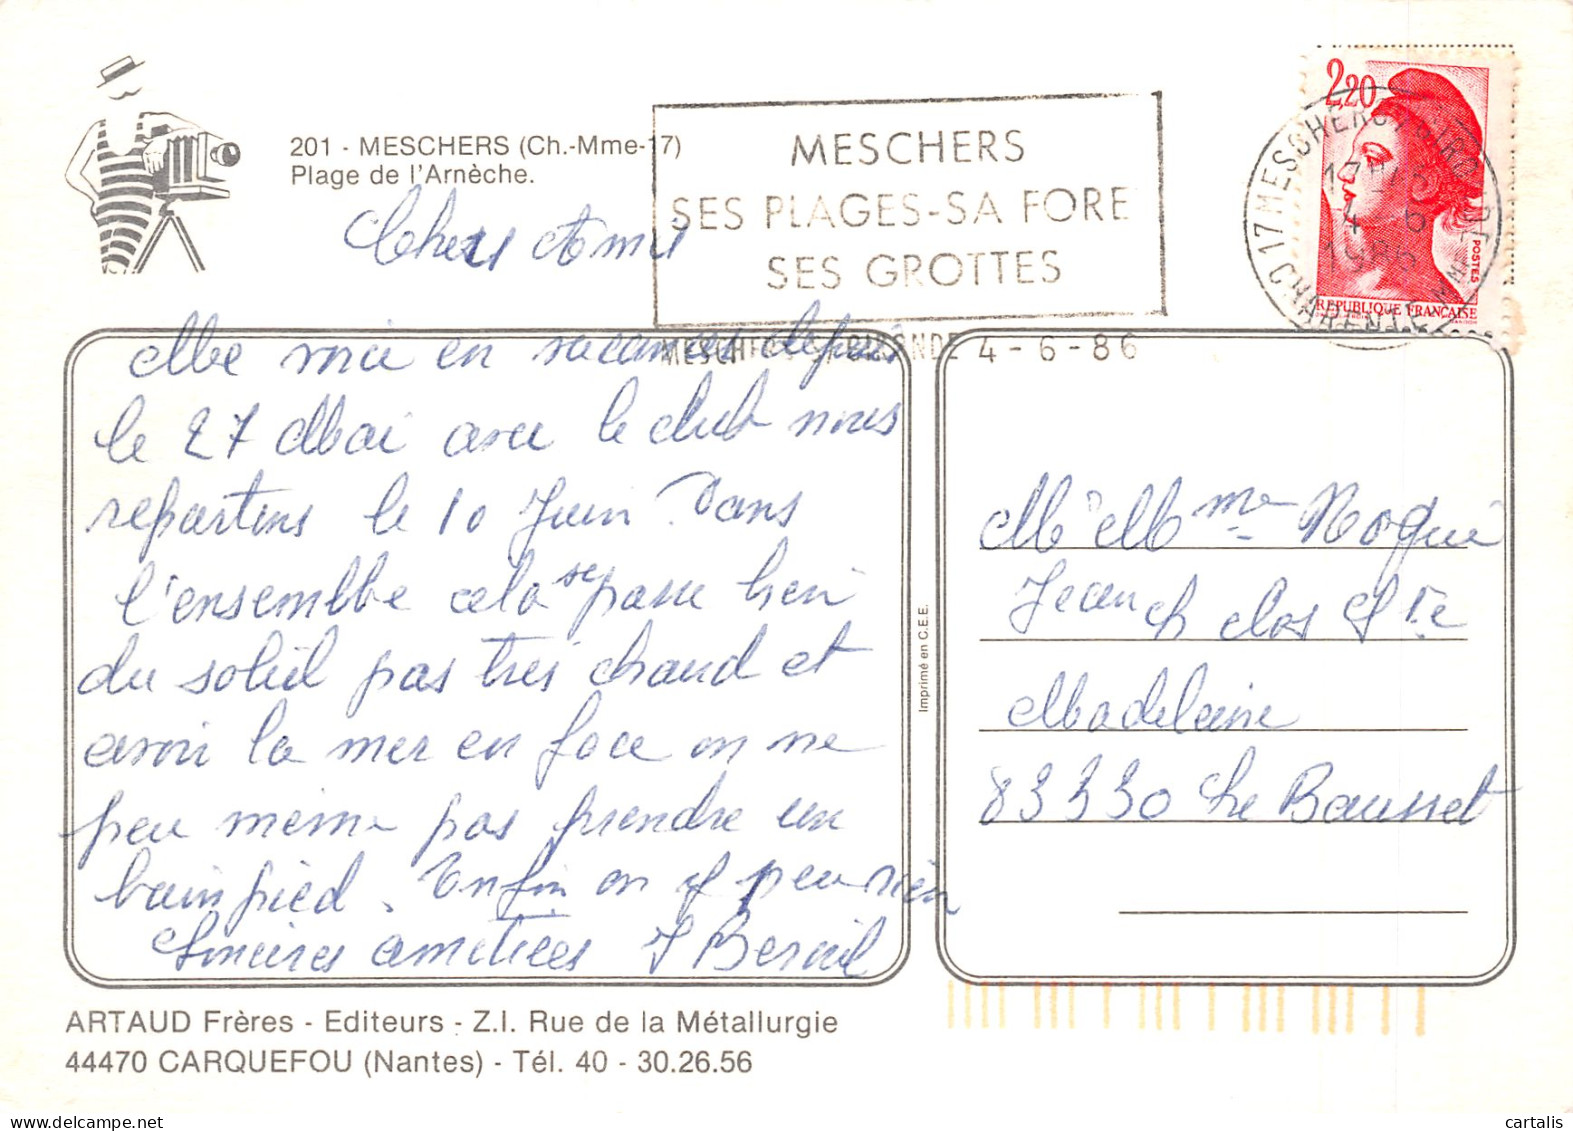 201 - MESCHERS (Ch.-Mme-17)
Plage de l'Arnèche.
MESCHERS
SES PLAGES-SA FORE
SES GROTTES
MESCHERS S/GIRONDE 4 - 6 - 86
2,20
POSTES
REPUBLIQUE FRANÇAISE
17 MESCHERS S/GIRONDE
4 6
1986
CHARENTE MME
Chers Amis
Me voici en vacances depuis
le 27 Mai avec le club nous
repartons le 10 Juin. Dans
l'ensemble cela se passe bien
du soleil pas tres chaud et
avoir la mer en face on ne
peu meme pas prendre un
bain pied. Enfin on y peu rien
Sinceres amities J
M et Mme Noqué
Jean ch clos Ste
Madeleine
83330 Le Bausset
Imprimé en C.E.E.
ARTAUD Frères - Editeurs - Z.I. Rue de la Métallurgie
44470 CARQUEFOU (Nantes) - Tél. 40 - 30.26.56
cartalis